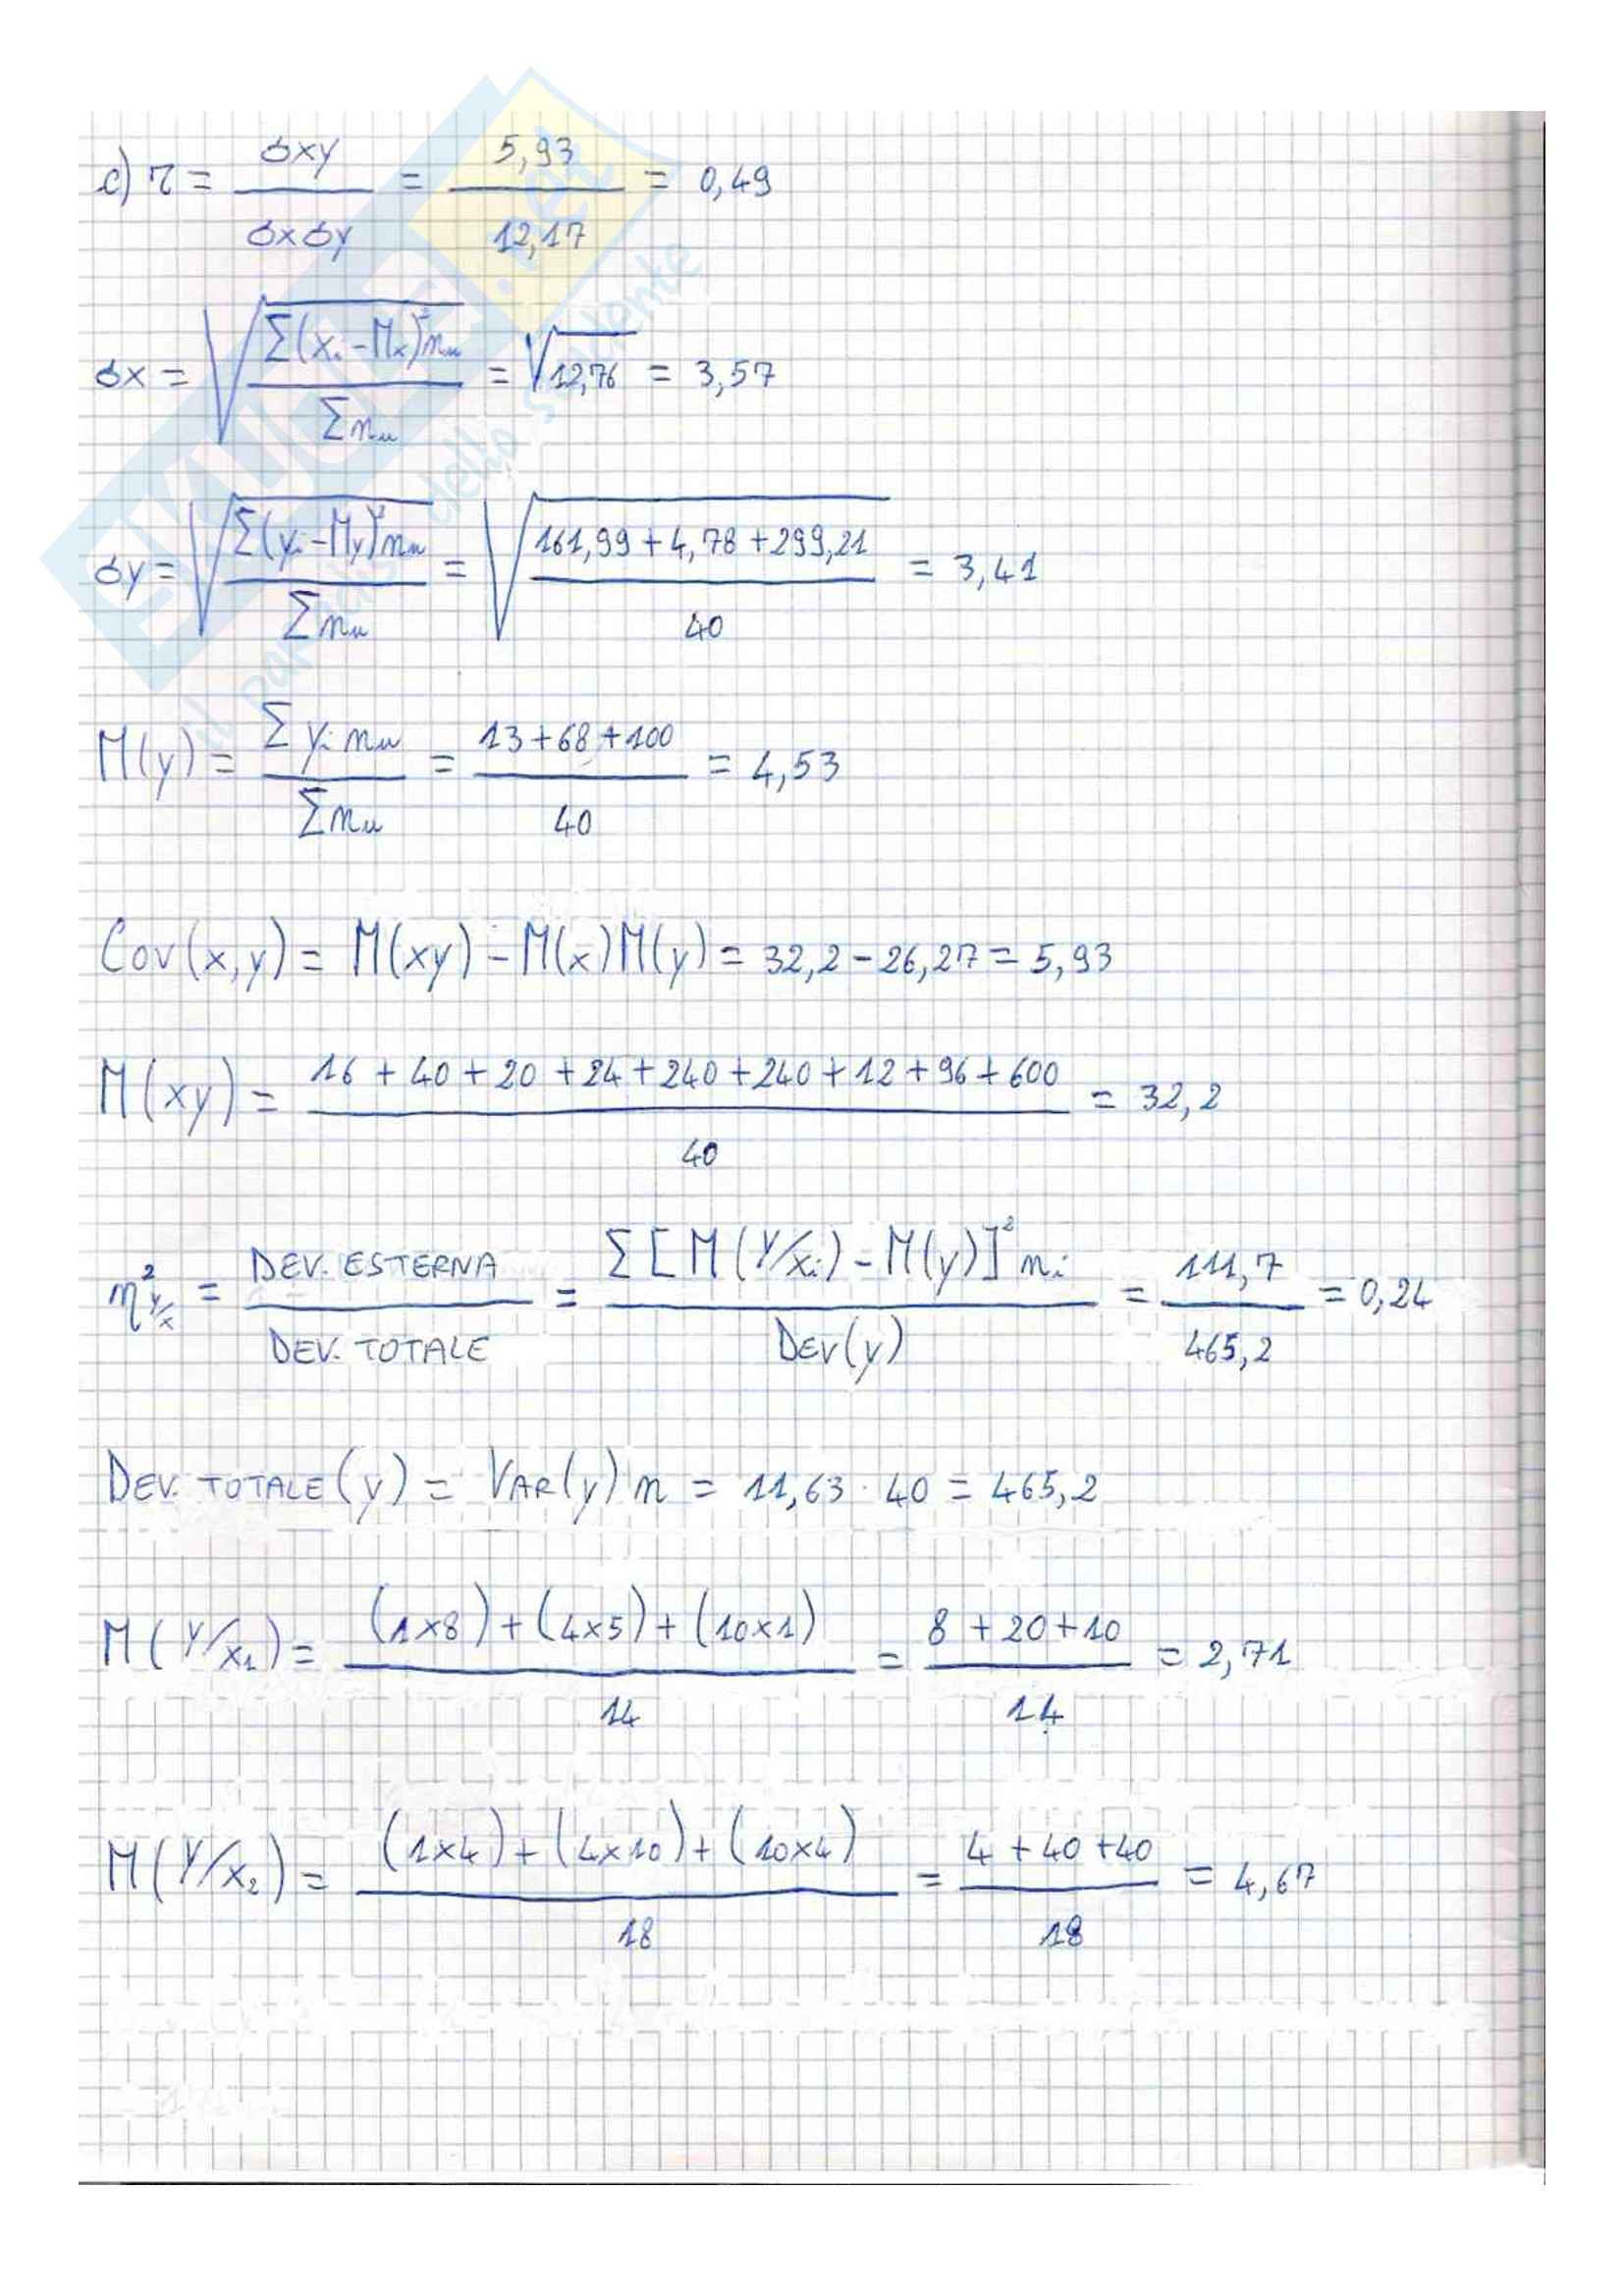 c) r = σxy / σxσy = 5,93 / 12,17 = 0,49
σx = √( Σ(xᵢ - Mx)² nᵤ / Σnᵤ ) = √12,76 = 3,57
σy = √( Σ(yᵢ - My)² nᵤ / Σnᵤ ) = √( 161,99 + 4,78 + 299,21 / 40 ) = 3,41
M(y) = Σ yᵢ nᵤ / Σnᵤ = 13 + 68 + 100 / 40 = 4,53
Cov(x,y) = M(xy) - M(x)M(y) = 32,2 - 26,27 = 5,93
M(xy) = 16 + 40 + 20 + 24 + 240 + 240 + 12 + 96 + 600 / 40 = 32,2
η² y/x = DEV. ESTERNA / DEV. TOTALE = Σ[M(Y/xᵢ) - M(y)]² nᵢ / DEV(y) = 111,7 / 465,2 = 0,24
DEV. TOTALE(y) = VAR(y) n = 11,63 · 40 = 465,2
M(Y/x₁) = (1x8) + (4x5) + (10x1) / 14 = 8 + 20 + 10 / 14 = 2,71
M(Y/x₂) = (1x4) + (4x10) + (10x4) / 18 = 4 + 40 + 40 / 18 = 4,67